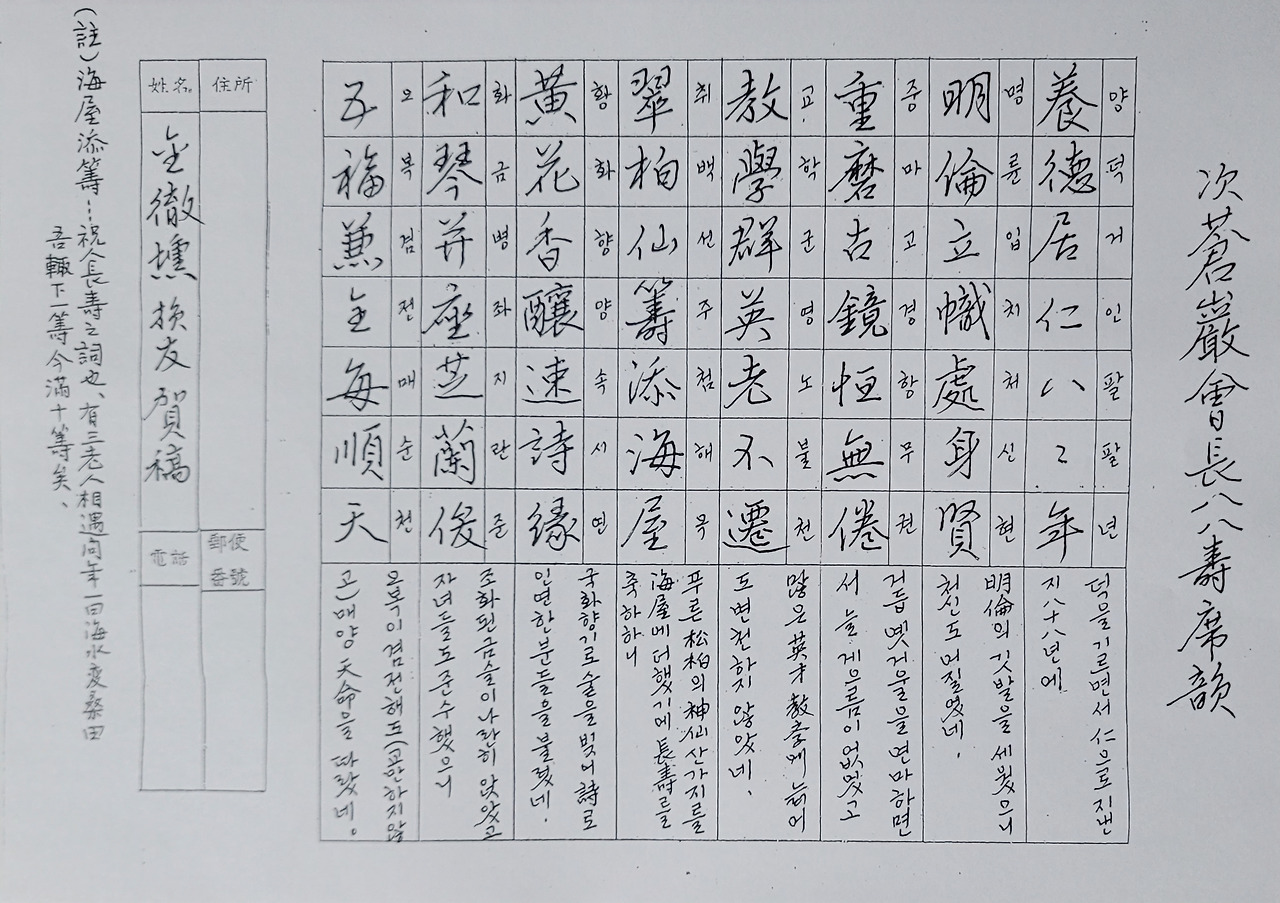 次蒼巖會長八八壽席韻
養德居仁八〻年
양덕거인팔팔년
덕을기르면서 仁으로 지낸
지八十八년에
明倫立幟處身賢
명륜입치처신현
明倫의 깃발을 세웠으니
처신도 어질었네.
重磨古鏡恒無倦
중마고경항무권
거듭 옛거울을 연마하면
서 늘 게으름이 없었고
教學群英老不遷
교학군영노불천
많은 英才 教育에 늙어
도 변천하지 않았네.
翠柏仙籌添海屋
취백선주첨해옥
푸른 松柏의 神仙산가지를
海屋에 더했기에 長壽를
축하하니
黃花香釀速詩緣
황화향양속시연
국화향기로 술을 빚어 詩로
인연한 분들을 불렀네.
和琴并座芝蘭俊
화금병좌지란준
조화된 금슬이 나란히 앉았고
자녀들도 준수했으니
五福兼全每順天
오복겸전매순천
오복이 겸전해도(교만하지않
고) 매양 天命을 따랐네.
住所
郵便番號
姓名
金徹 損友賀稿
電話
(註)海屋添籌…祝人長壽之詞也、有三老人相遇問年一曰海水變桑田
吾輒下一籌今滿十籌矣、